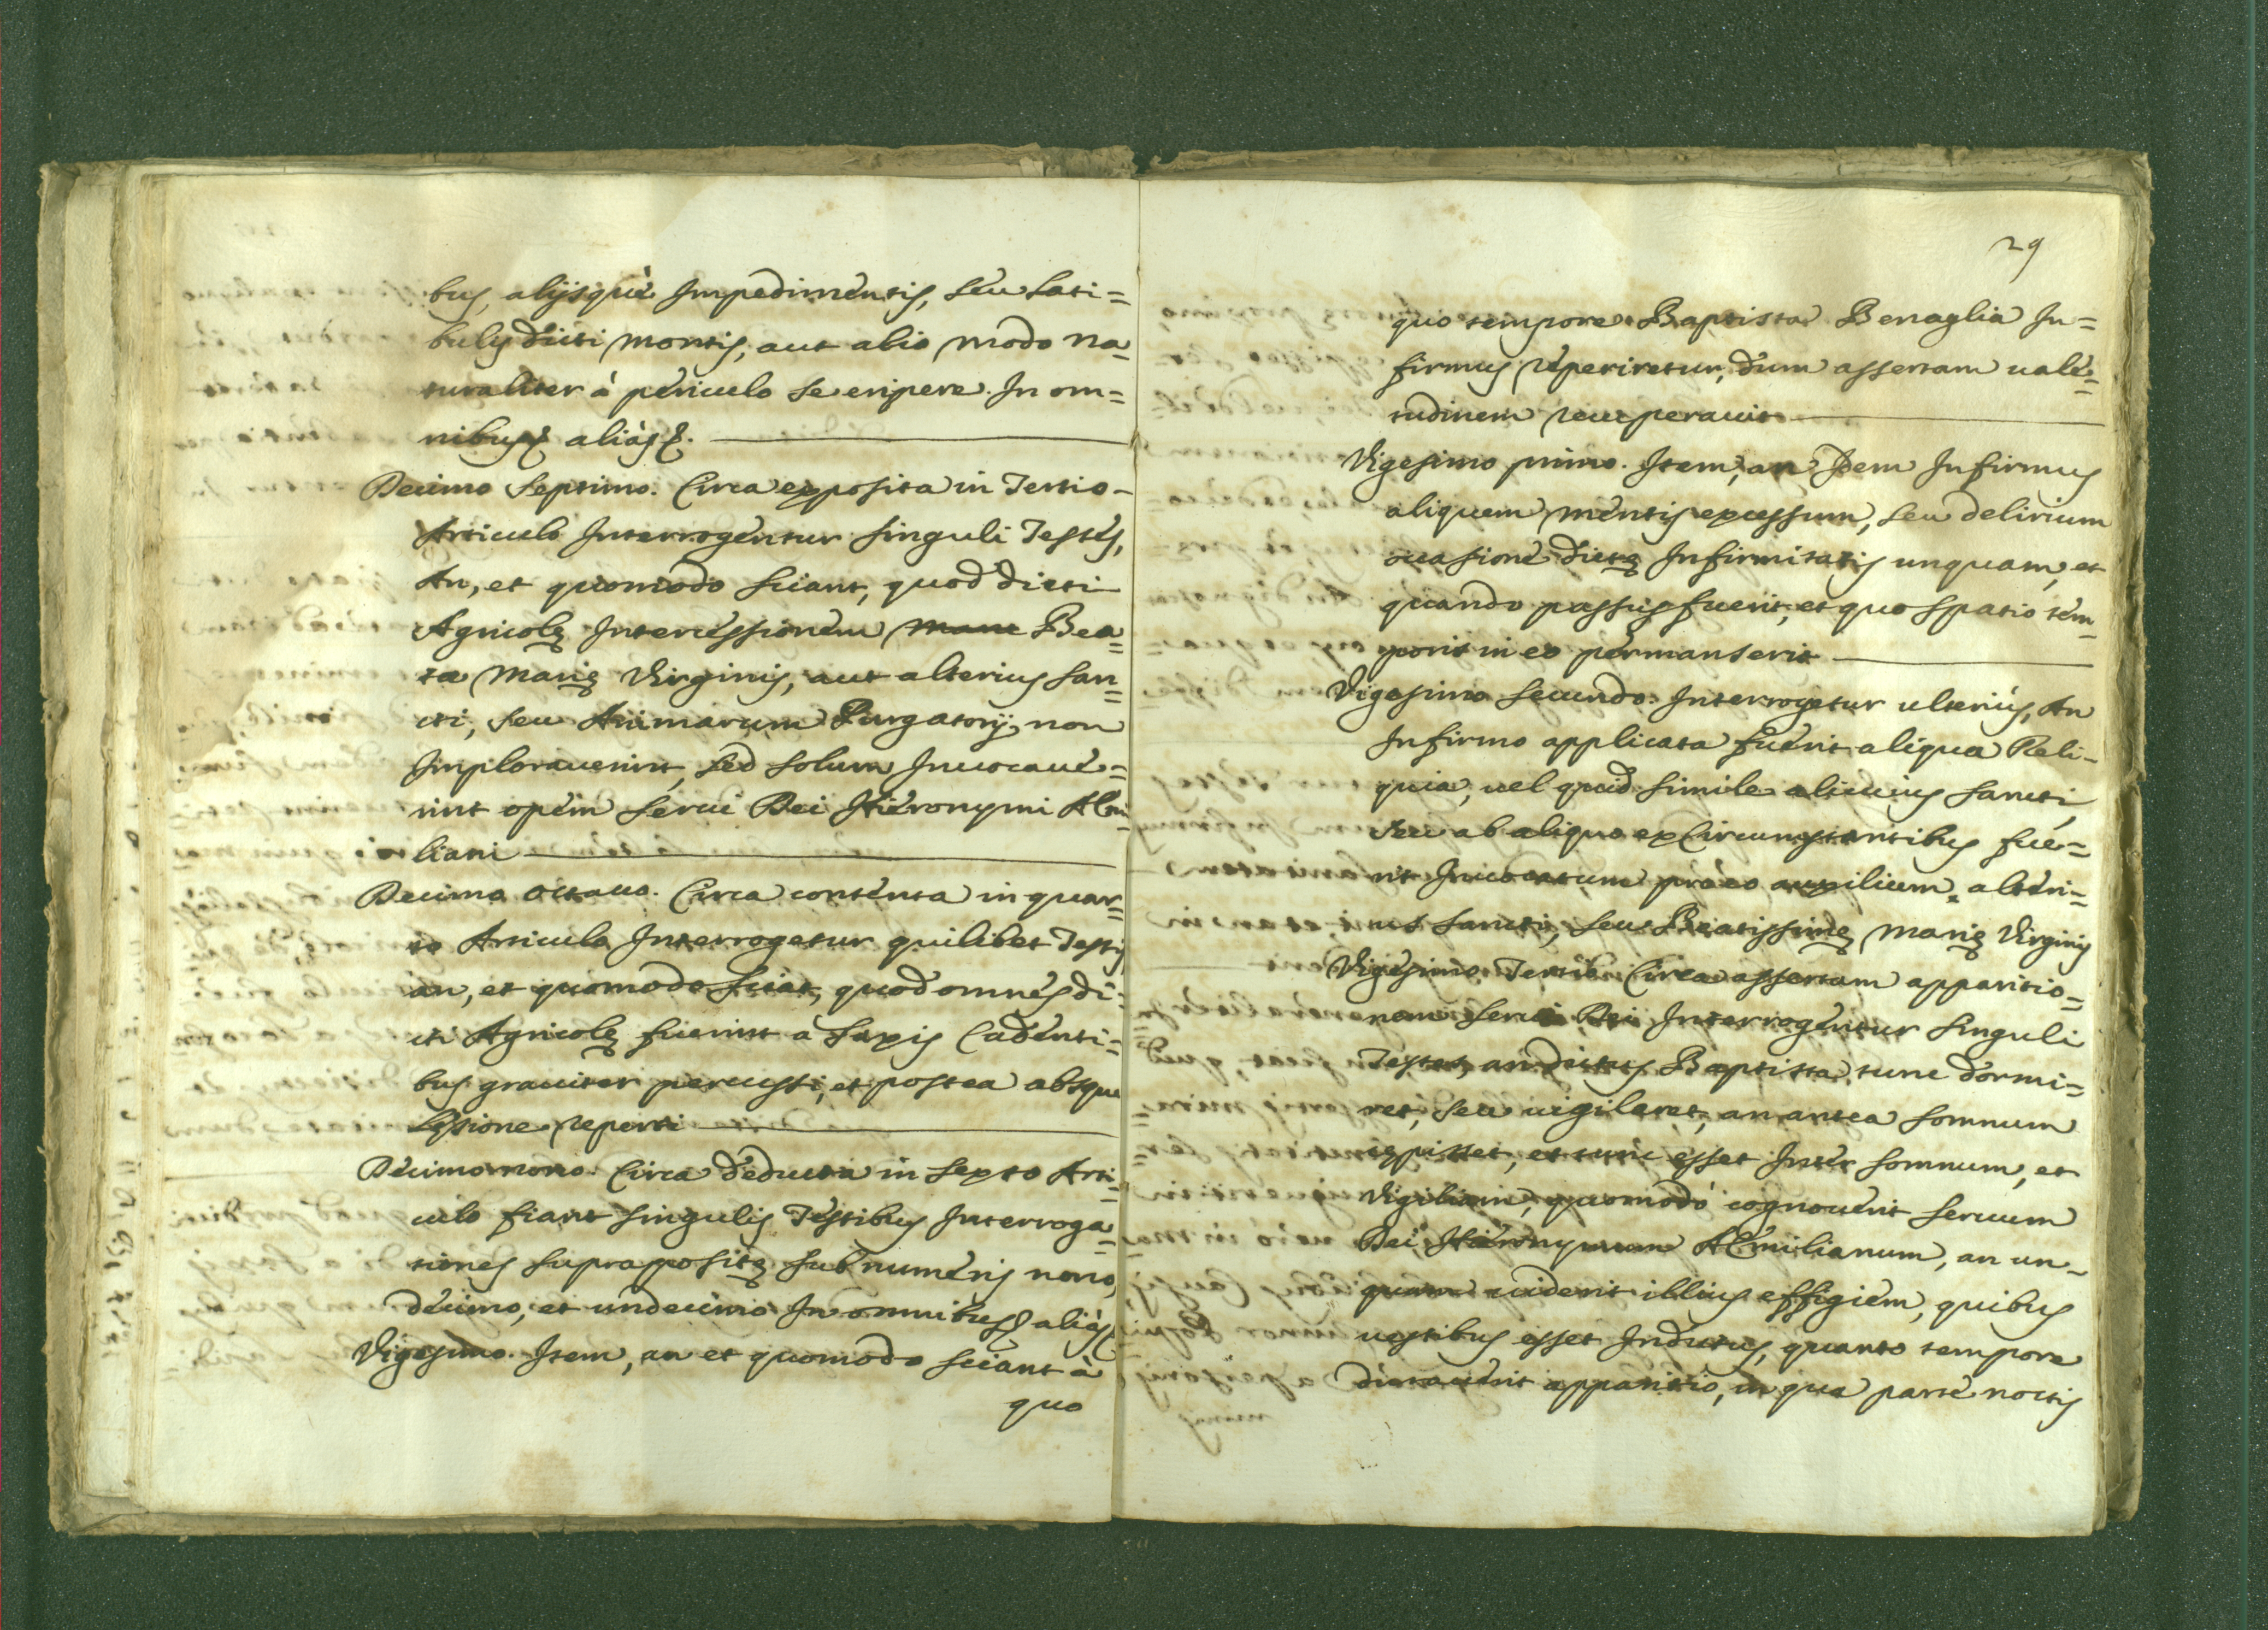 bus, alijsquè Impedimentis, seu Lati=
bulis dicti Montis, aut alio modo na=
turaliter à periculo se eripere. In om=
nibus &. aliàs &.
Decimo Septimo. Circa exposita in Tertio
Articulo Interrogentur singuli Testes,
An, et quomodo sciant, quod dicti
Agricolę Intercessionem Bea=
ta Marię Virginis, aut alterius San=
cti, seu Animarum Purgatorij, non
Implorauerint, sed solum Inuocaue=
rint opem Serui Dei Hieronymi AEmi=
liani
Decimo octauo. Circa contenta in quar=
to Articulo Interrogetur quilibet Testis,
an, et quomodo sciat, quod omnes di=
cti Agricolę fuerint à Saxis Cadenti=
bus grauiter percussi, et postea absque
Lęsione reperti
Decimo nono. Circa deducta in sexto Arti=
culo fiant singulis Testibus Interroga=
tiones suprapositę sub numeris nono,
decimo, et undecimo In omnibus & aliàs
Vigesimo. Item, an et quomodo sciant à
quo
29
quo tempore Baptista Benaglia In=
firmus reperiretur, dum assertam uale=
tudinem recuperauit
Vigesimo primo. Item, an Idem Infirmus
aliquem mentis excessum, seu delirium
occasione dictę Infirmitatis unquam, et
quando passus fuerit, et quo spatio tem=
poris in eo permanserit
Vigesimo Secundo. Interrogetur ulterius, An
Infirmo applicata fuerit aliqua Reli=
quia, uel quid simile alicuius Sancti,
seu ab aliquo ex Circumstantibus fue=
rit Inuocatum pro eo auxilium alteri=
us Sancti, seu Beatissimę Marię Virginis
Vigesimo Tertio. Circa assertam apparitio=
nem Serui Dei Interrogentur Singuli
Testes, an dictus Baptista tunc dormi=
ret, seu uigilaret, an antea somnum
cępisset, et tunc esset Inter somnum, et
Vigiliam, quomodò cognouerit seruum
Dei Hieronymum AEmilianum, an un=
quam uiderit illius effigiem, quibus
uestibus esset Indutus, quanto tempore
durauerit apparitio, in qua parte noctis